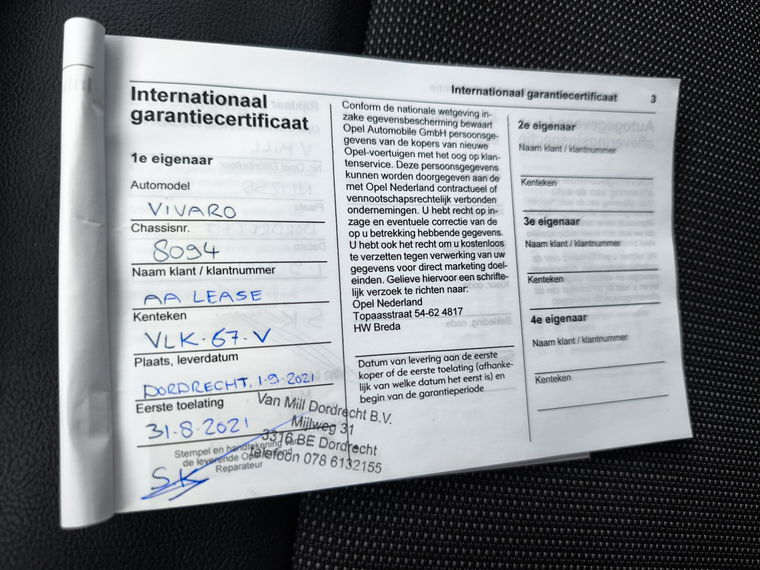 Internationaal garantiecertificaat 3
Internationaal
garantiecertificaat
1e eigenaar
Automodel
VIVARO
Chassisnr.
8094
Naam klant / klantnummer
AA LEASE
Kenteken
VLK-67-V
Plaats, leverdatum
DORDRECHT, 1-9-2021
Eerste toelating
31-8-2021
Stempel en handtekening van
de leverende Opel
Reparateur
S.K
Van Mill Dordrecht B.V.
Mijlweg 31
3316 BE Dordrecht
telefoon 078 6132155
Conform de nationale wetgeving in-
zake egevensbescherming bewaart
Opel Automobile GmbH persoonsge-
gevens van de kopers van nieuwe
Opel-voertuigen met het oog op klan-
tenservice. Deze persoonsgegevens
kunnen worden doorgegeven aan de
met Opel Nederland contractueel of
vennootschapsrechtelijk verbonden
ondernemingen. U hebt recht op in-
zage en eventuele correctie van de
op u betrekking hebbende gegevens.
U hebt ook het recht om u kosteloos
te verzetten tegen verwerking van uw
gegevens voor direct marketing doel-
einden. Gelieve hiervoor een schrifte-
lijk verzoek te richten naar:
Opel Nederland
Topaasstraat 54-62 4817
HW Breda
Datum van levering aan de eerste
koper of de eerste toelating (afhanke-
lijk van welke datum het eerst is) en
begin van de garantieperiode
2e eigenaar
Naam klant / klantnummer
Kenteken
3e eigenaar
Naam klant / klantnummer
Kenteken
4e eigenaar
Naam klant / klantnummer
Kenteken